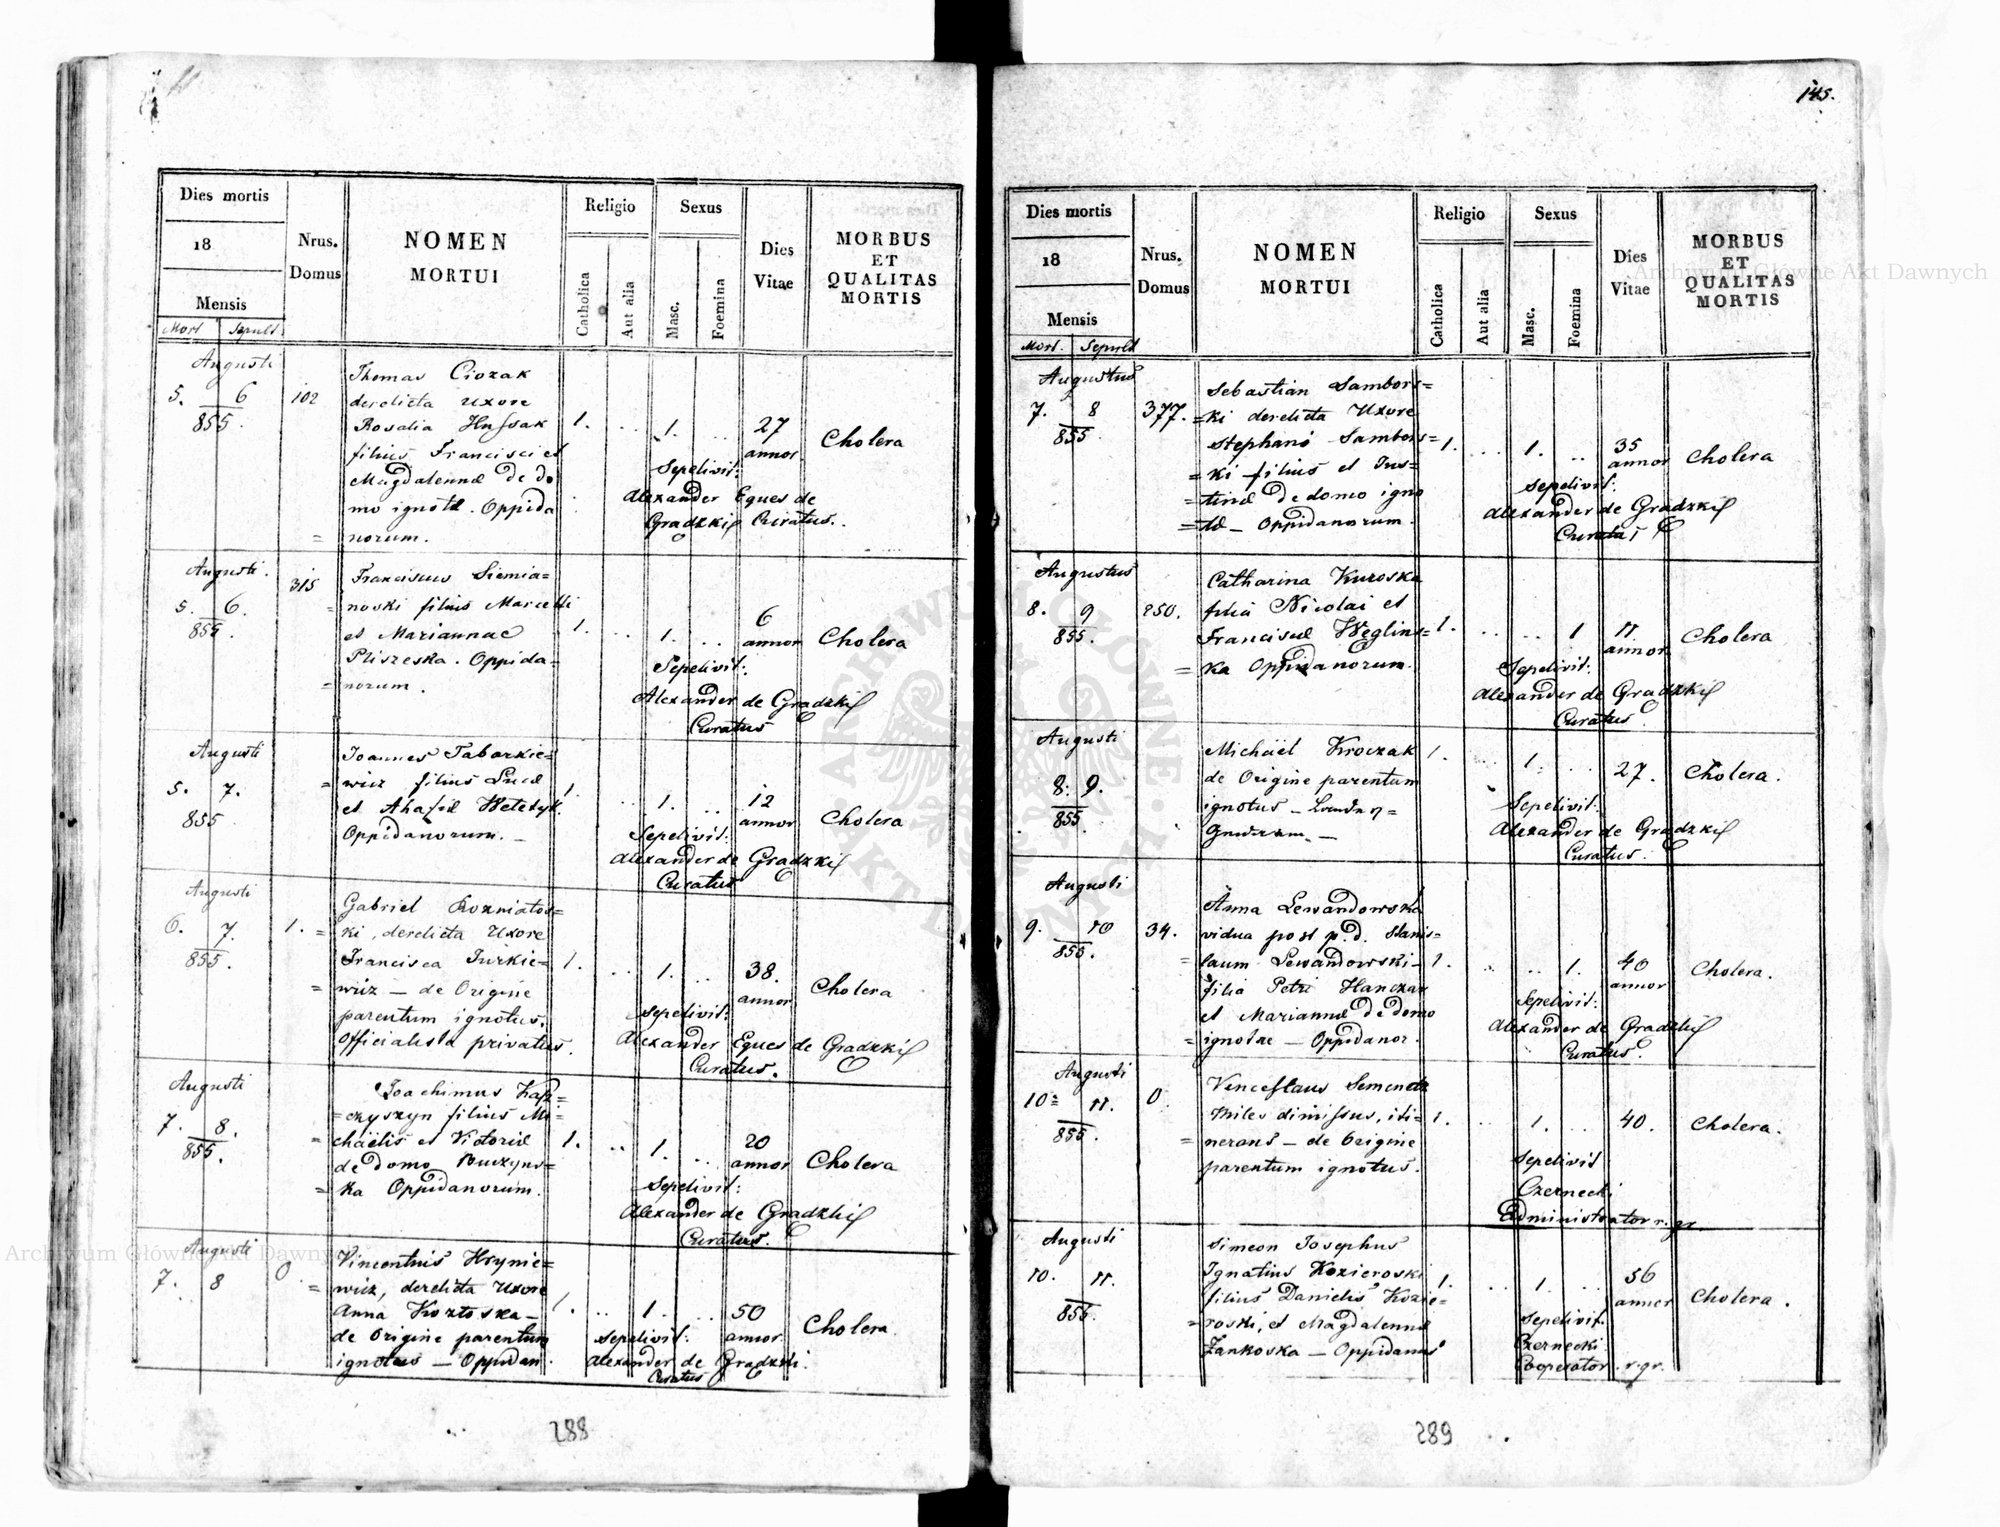 145.
Dies mortis
18
Mensis
Mort Sepult.
Nrus.
Domus
NOMEN
MORTUI
Religio
Catholica
Aut alia
Sexus
Masc.
Foemina
Dies
Vitae
MORBUS
ET
QUALITAS
MORTIS
Augusti
5. 6
855.
102
Thomas Ciozak
derelicta uxore
Rosalia Hussak
filius Francisci et
Magdalennæ de do
mo ignotæ. Oppida
= norum.
1. .. 1. ..
27
annor.
Cholera
Sepelivit:
Alexander Eques de
Gradzki Curatus.
Augusti.
5. 6.
855.
315
Franciscus Siemia=
= noski filius Marcelli
et Mariannae
Pliszeska. Oppida=
= norum.
1. .. 1. ..
6
annor
Cholera
Sepelivit:
Alexander de Gradzki
Curatus
Augusti
5. 7.
855
Joannes Tabarkie=
= wicz filius Lucæ
et Ahafiæ
Oppidanorum. _
1. .. 1. ..
12
annor
Cholera
Sepelivit:
Alexander de Gradzki
Curatus
Augusti
6. 7.
855.
1.
Gabriel Rozniatos=
= ki, derelicta Uxore
Francisca Jurkie=
= wicz — de Origine
parentum ignotus.
Officialista privatus.
1. .. 1. ..
38.
annor
Cholera
Sepelivit:
Alexander Eques de Gradzki
Curatus.
Augusti
7. 8.
855.
Joachimus Kap=
= czyszyn filius Mi=
= chaëlis et Victoriæ
de domo Buczyns=
= ka Oppidanorum.
1. .. 1. ..
20
annor
Cholera
Sepelivit:
Alexander de Gradzki
Curatus.
Augusti
7. 8
0
Vincentius Hrynie=
= wicz, derelicta Uxore
Anna Kozłoska —
de Origine parentum
ignotus — Oppidan.
1. .. 1. ..
50
annor
Cholera
Sepelivit:
Alexander de Gradzki.
Curatus
288
Dies mortis
18
Mensis
Mort. Sepult
Nrus.
Domus
NOMEN
MORTUI
Religio
Catholica
Aut alia
Sexus
Masc.
Foemina
Dies
Vitae
MORBUS
ET
QUALITAS
MORTIS
Augustus
7. 8
855
377.
Sebastian Sambors=
= ki derelicta Uxore
Stephani Sambors=
= ki filius et Jus=
= tinæ de domo igno
= tæ — Oppidanorum.
1. .. 1. ..
35
annor
Cholera
Sepelivit:
Alexander de Gradzki
Curatus
Augustus
8. 9
855.
250.
Catharina Kuroska
filia Nicolai et
Franciscæ Weglins=
= ka Oppidanorum.
1. .. .. 1
11.
annor
Cholera
Sepelivit:
Alexander de Gradzki
Curatus.
Augusti
8. 9.
855.
Michaël Kroczak
de Origine parentum
ignotus —
1. .. 1. ..
27.
Cholera.
Sepelivit:
Alexander de Gradzki
Curatus.
Augusti
9. 10
855.
34.
Anna Lewandowska
vidua post p.d. Stanis=
= laum Lewandowski —
filia Petri Hanczar
et Mariannæ de domo
= ignotae — Oppidanor.
1. .. .. 1.
40
annor
Cholera.
Sepelivit:
Alexander de Gradzki
Curatus.
Augusti
10= 11.
855.
0
Venceslaus
Miles dimissus, iti=
= nerans — de Origine
parentum ignotus.
1. .. 1. ..
40.
Cholera.
Sepelivit
Czernecki
Administrator r. gr
Augusti
10. 11.
855.
Simeon Josephus
Ignatius Kozieroski
filius Danielis Kozie=
= roski, et Magdalennæ
Zankoska — Oppidanus
1. .. 1. ..
56
annor
Cholera.
Sepelivit.
Czernecki
Cooperator r. gr.
289
Archiwum Główne Akt Dawnych
Archiwum Główne Akt Dawnych
ARCHIWUM GŁÓWNE AKT DAWNYCH